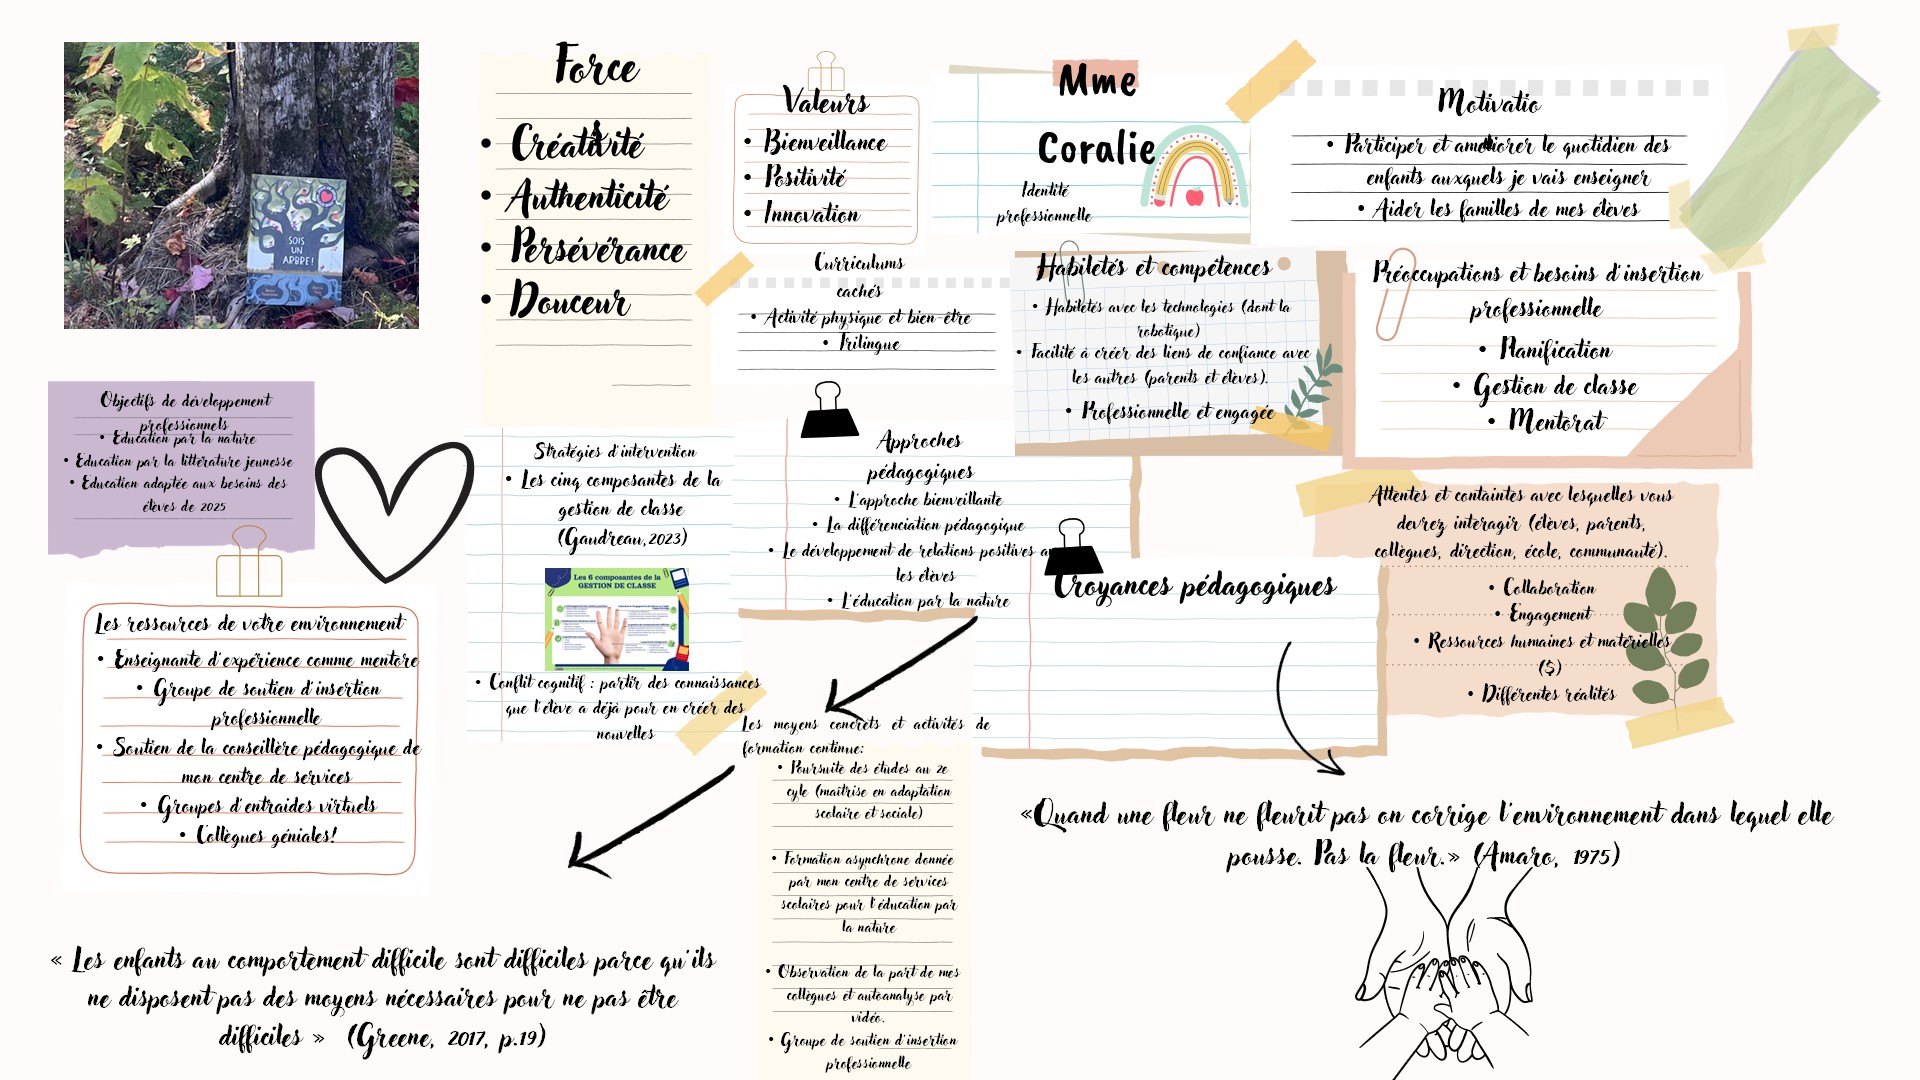 SOIS
UN
ARBRE!
Force
• Créativité
• Authenticité
• Persévérance
• Douceur
Valeurs
• Bienveillance
• Positivité
• Innovation
Mme
Coralie
Identité
professionnelle
Motivatio
n
• Participer et améliorer le quotidien des
enfants auxquels je vais enseigner
• Aider les familles de mes élèves
Curriculums
cachés
• Activité physique et bien-être
• Trilingue
Habiletés et compétences
• Habiletés avec les technologies (dont la
robotique)
• Facilité à créer des liens de confiance avec
les autres (parents et élèves).
• Professionnelle et engagée
Préoccupations et besoins d'insertion
professionnelle
• Planification
• Gestion de classe
• Mentorat
Objectifs de développement
professionnels
• Éducation par la nature
• Éducation par la littérature jeunesse
• Éducation adaptée aux besoins des
élèves de 2025
Stratégies d'intervention
• Les cinq composantes de la
gestion de classe
(Gaudreau,2023)
Les 6 composantes de la
GESTION DE CLASSE
• Conflit cognitif : partir des connaissances
que l'élève a déjà pour en créer des
nouvelles
Approches
pédagogiques
• L'approche bienveillante
• La différenciation pédagogique
• Le développement de relations positives a
les élèves
• L'éducation par la nature
Croyances pédagogiques
Attentes et containtes avec lesquelles vous
devrez interagir (élèves, parents,
collègues, direction, école, communauté).
• Collaboration
• Engagement
• Ressources humaines et matérielles
($)
• Différentes réalités
Les ressources de votre environnement
• Enseignante d'expérience comme mentore
• Groupe de soutien d'insertion
professionnelle
• Soutien de la conseillère pédagogique de
mon centre de services
• Groupes d'entraides virtuels
• Collègues géniales!
Les moyens concrets et activités de
formation continue:
• Poursuite des études au 2e
cyle (maîtrise en adaptation
scolaire et sociale)
• Formation asynchrone donnée
par mon centre de services
scolaires pour l'éducation par
la nature
• Observation de la part de mes
collègues et autoanalyse par
vidéo.
• Groupe de soutien d'insertion
professionnelle
«Quand une fleur ne fleurit pas on corrige l'environnement dans lequel elle
pousse. Pas la fleur.» (Amaro, 1975)
« Les enfants au comportement difficile sont difficiles parce qu'ils
ne disposent pas des moyens nécessaires pour ne pas être
difficiles » (Greene, 2017, p.19)